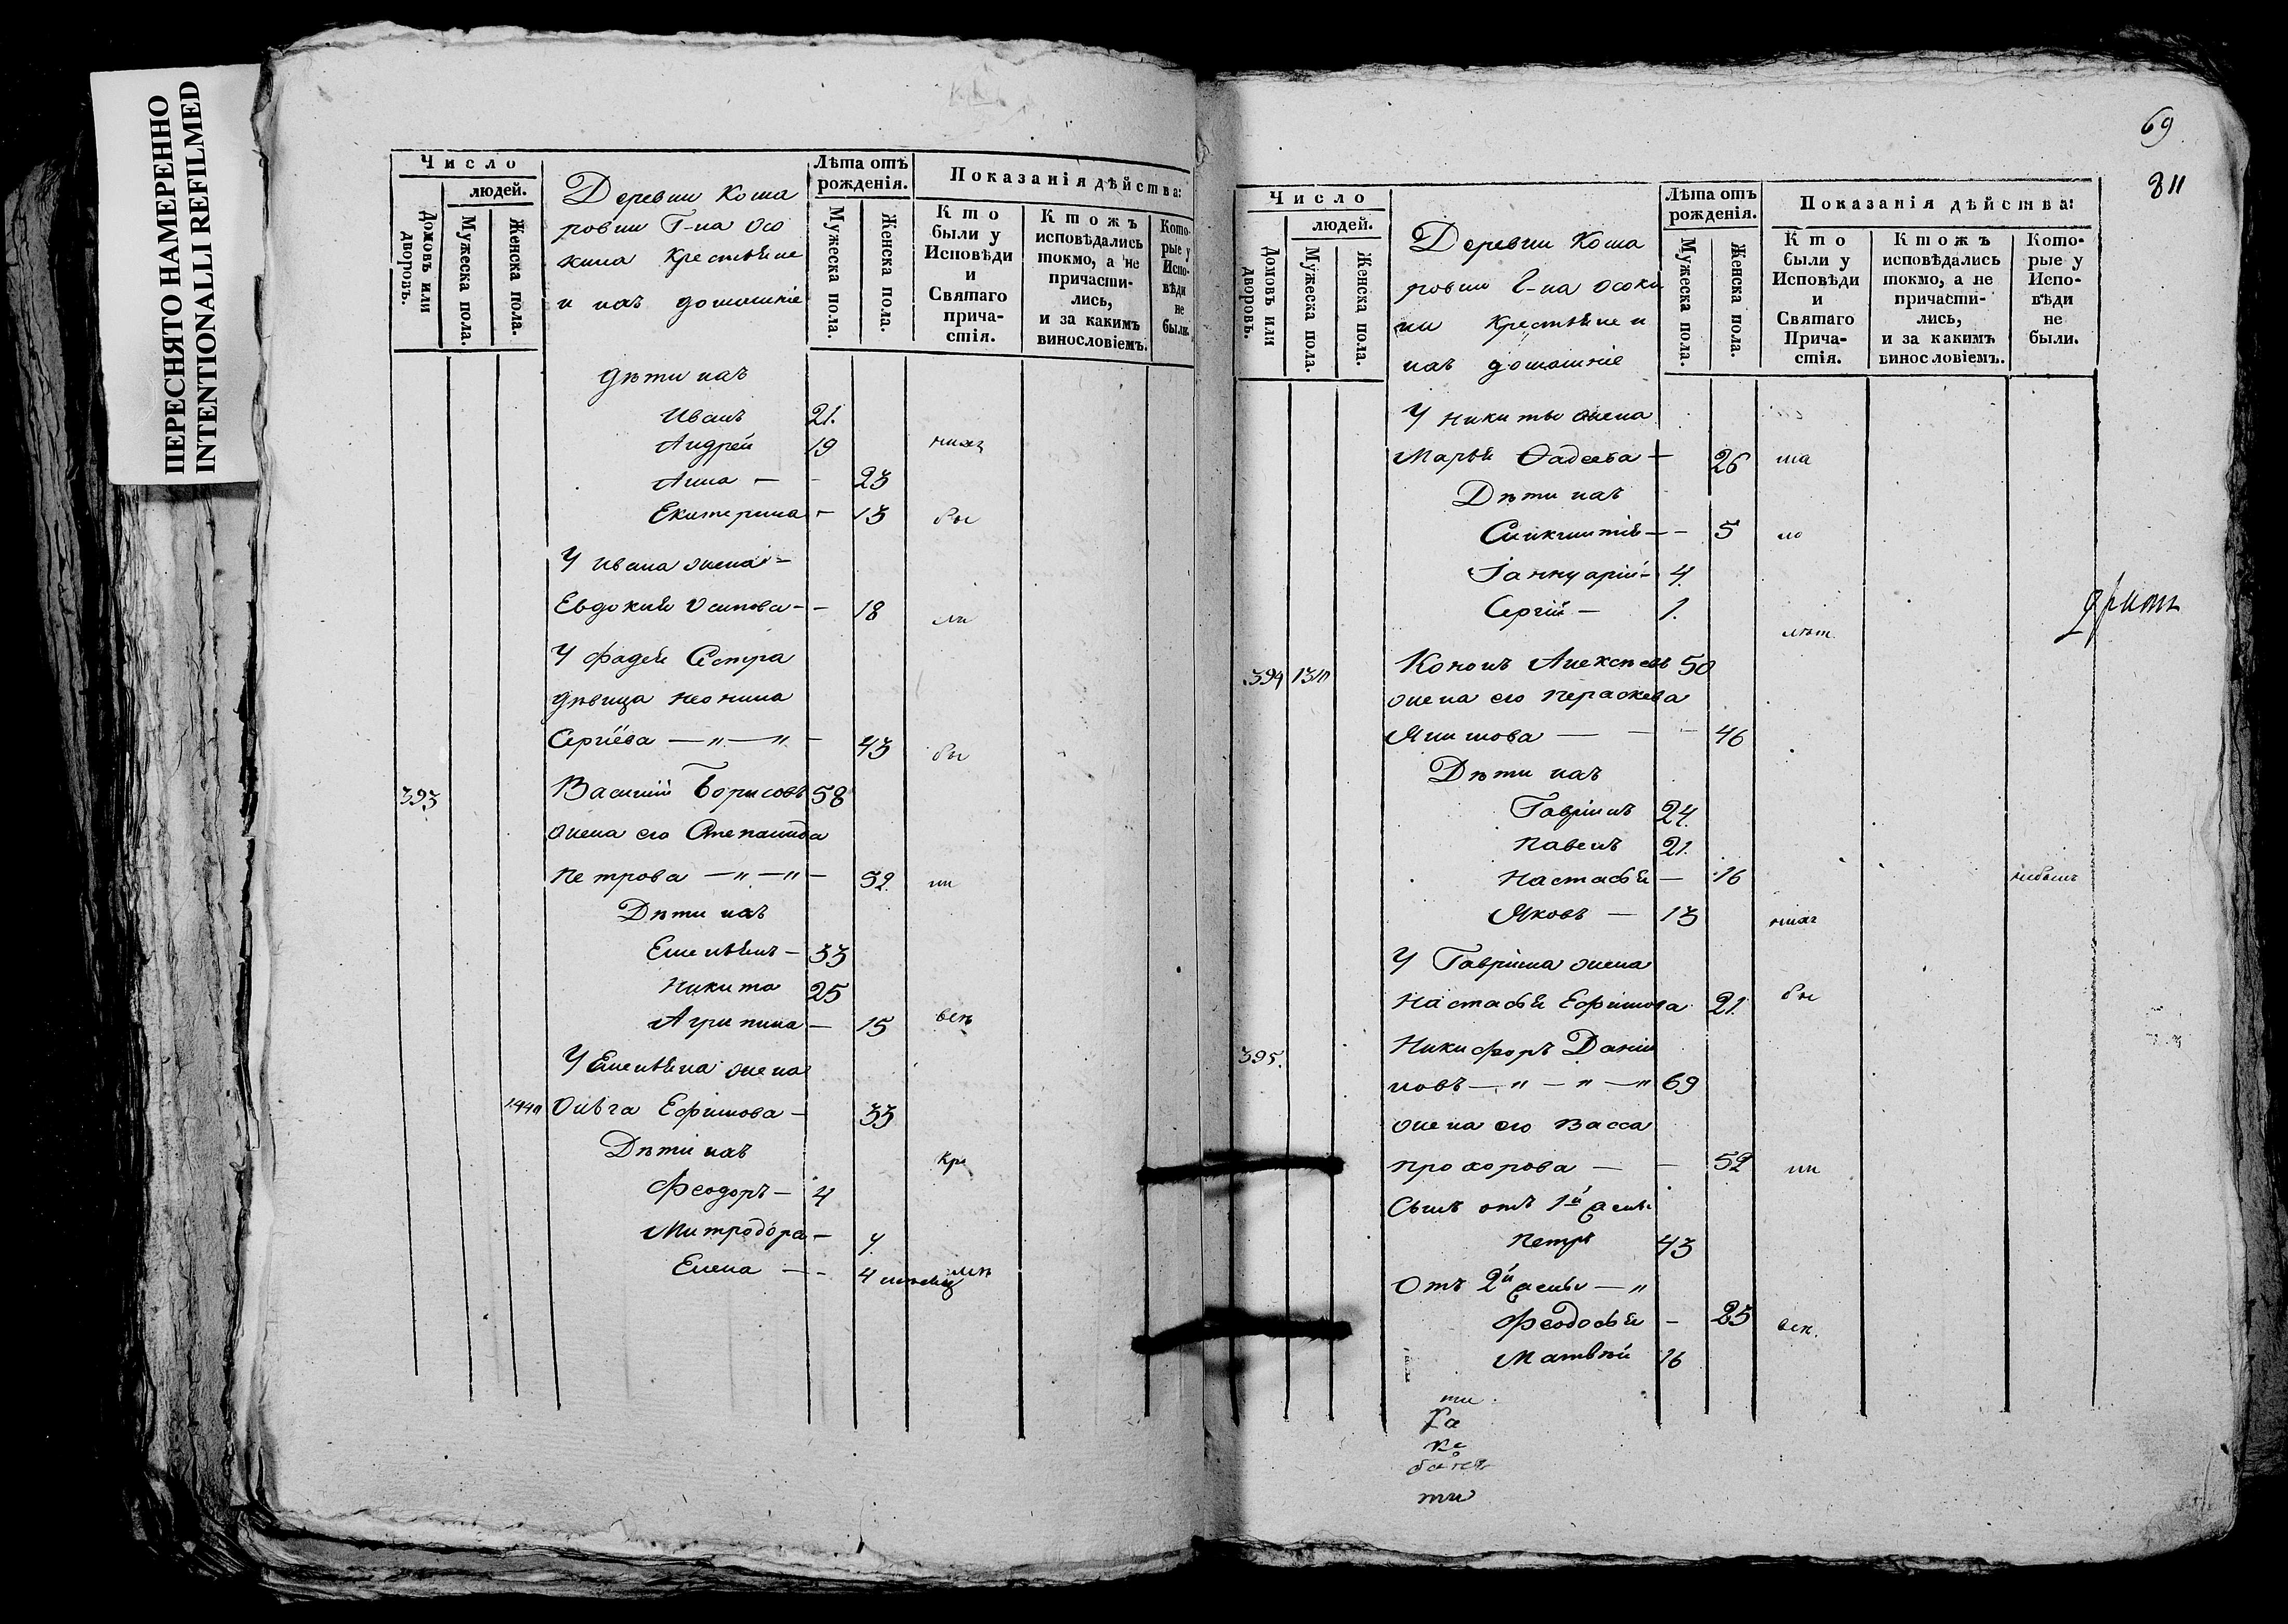 ПЕРЕСНЯТО НАМЕРЕННО
INTENTIONALLI REFILMED
Число
людей.
Домовъ или дворовъ.
Мужеска пола.
Женска пола.
Деревни Кома
ровки Г-на Осо
кина Крестьяне
и ихъ домашніе
Лѣта отъ рожденія.
Мужеска пола.
Женска пола.
Показанія дѣйства:
Кто были у Исповѣди и Святаго прича-стія.
Ктожъ исповѣдались токмо, а не причасти-лись, и за какимъ винословіемъ.
Кото-рые у Испо-вѣди не были.
Дѣти ихъ
Иванъ 21.
Андрей 19
Анна — - 23
Екатерина - 13 бы
У Ивана жена -
Евдокия Осипова - - 18 ли
У Фадея Сестра
дѣвица Неонила
Сергіева — „ — „ - 43 бы
393 Василий Борисовъ 58
жена его Степанида
Петрова — „ — „ - 52 ли
Дѣти ихъ
Емельянъ - 33
Никита 25
Агрипина — 15 всѣ
У Емельяна жена
Ольга Ефимова - 33
Дѣти ихъ
Феодоръ - 4
Митродора -
Елена — - 4 месяц
69
811
Число
людей.
Домовъ или дворовъ.
Мужеска пола.
Женска пола.
Деревни Кома
ровки Г-на Осоки
на Крестьяне и
ихъ домашніе
Лѣта отъ рожденія.
Мужеска пола.
Женска пола.
Показанія дѣйства:
Кто были у Исповѣди и Святаго Прича-стія.
Ктожъ исповѣдались токмо, а не причасти-лись, и за какимъ винословіемъ.
Кото-рые у Испо-вѣди не были.
У Никиты жена
Марья Фадеева - 26 ма
Дѣти ихъ
Синклитія - - 5 ло
Іаннуарій - 4
Сергій — 1.
лѣт.
394 Кононъ Алексѣевъ 50
жена его Пераскева
Якимова — — - 46
Дѣти ихъ
Гавріилъ 24.
Павелъ 21.
Настасья — 16 небыла
Яковъ — 13
У Гавріила жена
Настасья Ефимова 21 бы
395. Никифоръ Даніи
ловъ — „ — „ — „ 69
жена его Васса
Прохорова — — 52 ли
Сынъ отъ 1й жены
Петръ 43
Отъ 2й жены — „
Феодосья - 25 всѣ.
Матвѣй 16
ти
ти